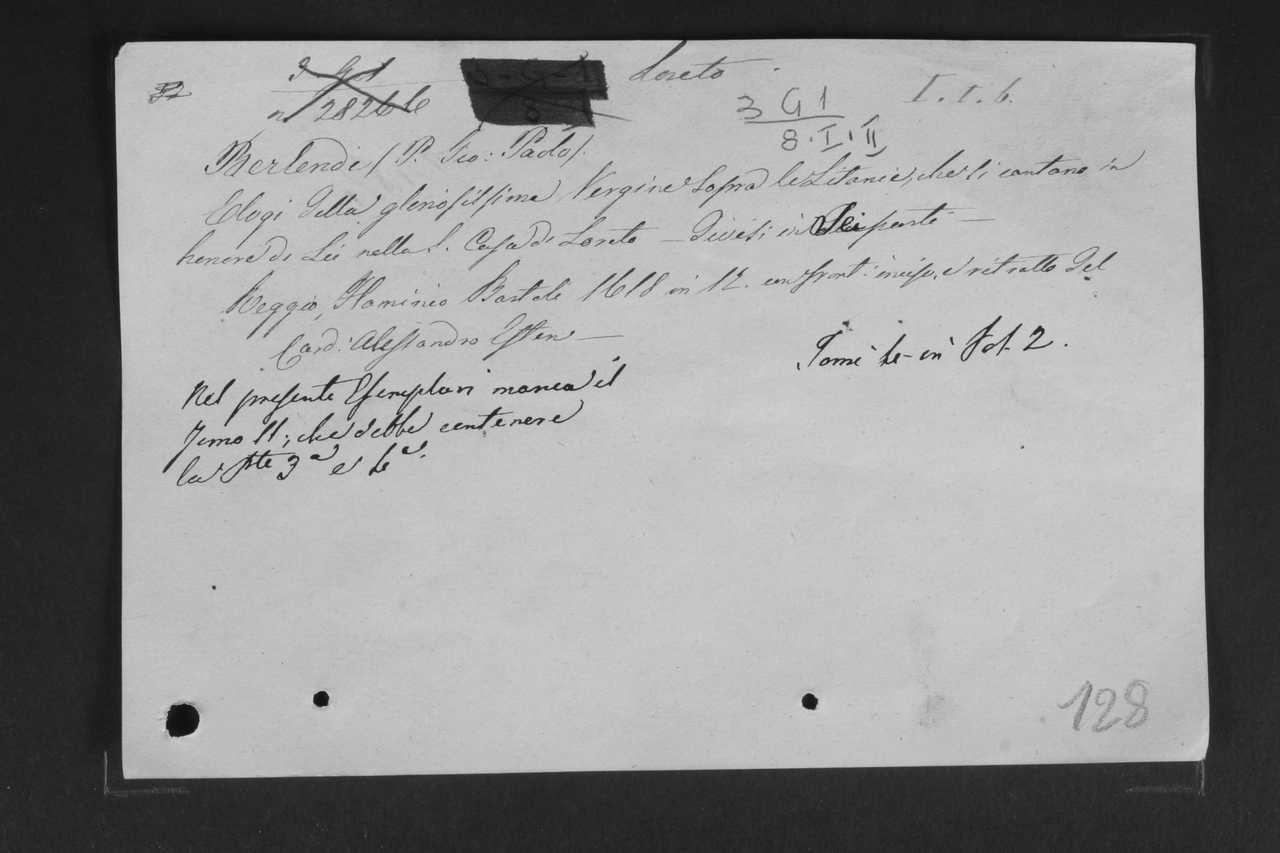 Loreto
3 G 1
n 2826
3 G 1
8. I. II
I. I. 6.
Berlendi (P. Gio: Paolo).
Elogi della gloriosissima Vergine sopra le Litanie, che si cantano in
honore di Lei nella S. Casa di Loreto — Divisi in Sei parti —
Reggio, Flaminio Bartoli 1618 in 12. con front: incis. e ritratto del
Card: Alessandro Esten —
Tomi in Vol. 2.
Nel presente Esemplari manca il
Tomo II, che debbe contenere
la Pte 3a e 4a.
128